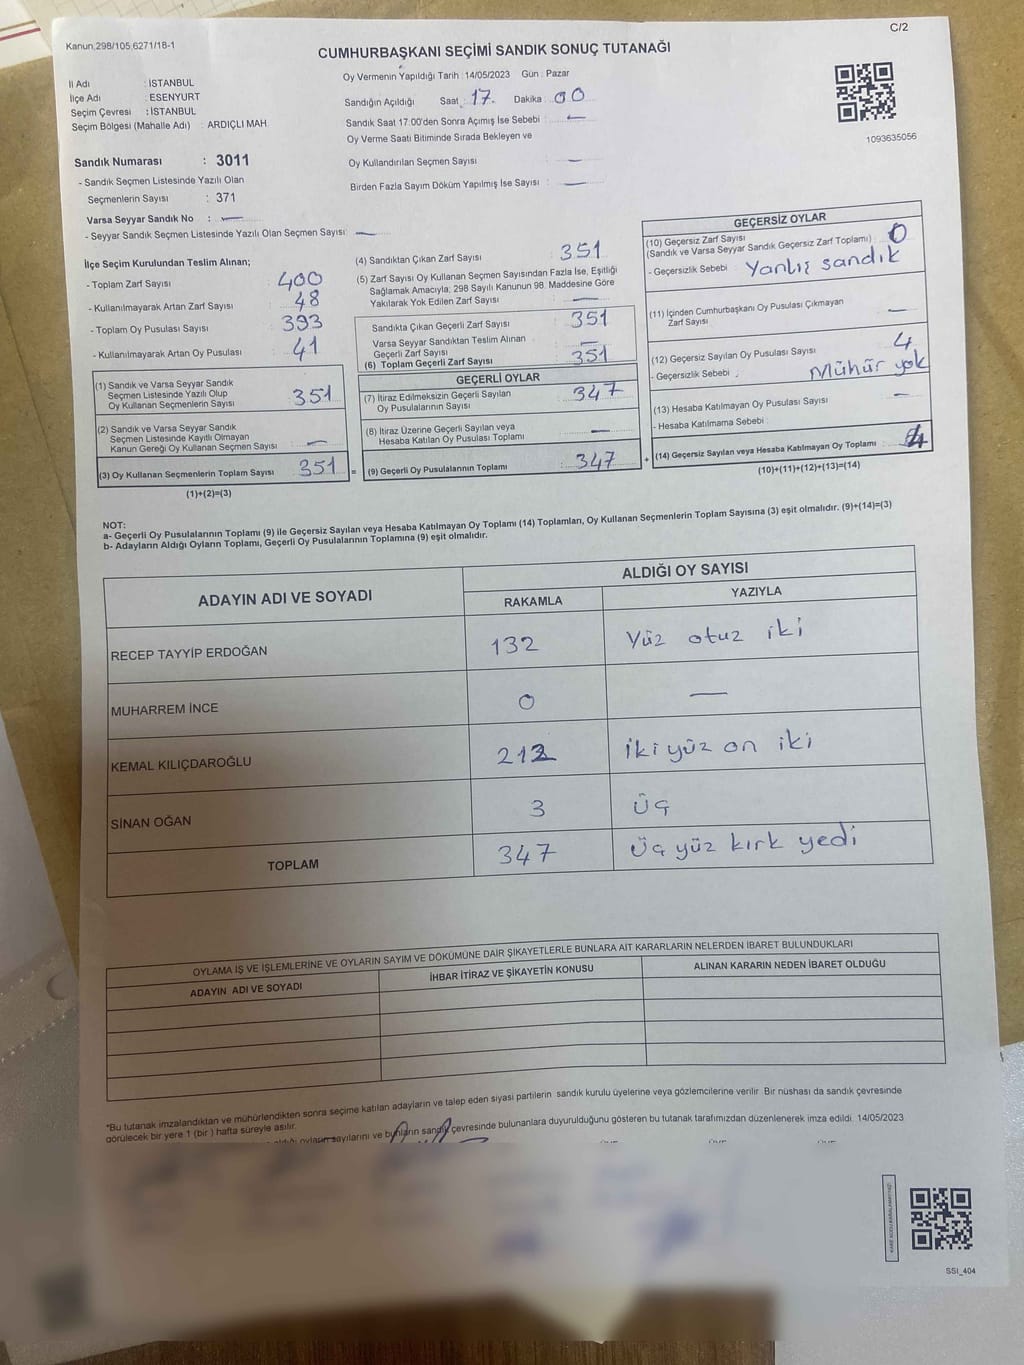 Kanun,298/105,6271/18-1
C/2
CUMHURBAŞKANI SEÇİMİ SANDIK SONUÇ TUTANAĞI
İl Adı : İSTANBUL
İlçe Adı : ESENYURT
Seçim Çevresi : İSTANBUL
Seçim Bölgesi (Mahalle Adı) : ARDIÇLI MAH.
Sandık Numarası : 3011
- Sandık Seçmen Listesinde Yazılı Olan
Seçmenlerin Sayısı : 371
Varsa Seyyar Sandık No : —
- Seyyar Sandık Seçmen Listesinde Yazılı Olan Seçmen Sayısı: —
Oy Vermenin Yapıldığı Tarih :14/05/2023 Gün : Pazar
Sandığın Açıldığı Saat : 17. Dakika : 00
Sandık Saat 17.00'den Sonra Açımış İse Sebebi : —
Oy Verme Saati Bitiminde Sırada Bekleyen ve
Oy Kullandırılan Seçmen Sayısı : —
Birden Fazla Sayım Döküm Yapılmış İse Sayısı : —
1093635056
İlçe Seçim Kurulundan Teslim Alınan;
- Toplam Zarf Sayısı : 400
- Kullanılmayarak Artan Zarf Sayısı : 48
- Toplam Oy Pusulası Sayısı : 393
- Kullanılmayarak Artan Oy Pusulası : 41
(1) Sandık ve Varsa Seyyar Sandık
Seçmen Listesinde Yazılı Olup
Oy Kullanan Seçmenlerin Sayısı : 351
(2) Sandık ve Varsa Seyyar Sandık
Seçmen Listesinde Kayıtlı Olmayan
Kanun Gereği Oy Kullanan Seçmen Sayısı : —
(3) Oy Kullanan Seçmenlerin Toplam Sayısı : 351 =
(1)+(2)=(3)
(4) Sandıktan Çıkan Zarf Sayısı : 351
(5) Zarf Sayısı Oy Kullanan Seçmen Sayısından Fazla İse, Eşitliği
Sağlamak Amacıyla; 298 Sayılı Kanunun 98. Maddesine Göre
Yakılarak Yok Edilen Zarf Sayısı : —
Sandıkta Çıkan Geçerli Zarf Sayısı : 351
Varsa Seyyar Sandıktan Teslim Alınan
Geçerli Zarf Sayısı : —
(6) Toplam Geçerli Zarf Sayısı : 351
GEÇERLİ OYLAR
(7) İtiraz Edilmeksizin Geçerli Sayılan
Oy Pusulalarının Sayısı : 347
(8) İtiraz Üzerine Geçerli Sayılan veya
Hesaba Katılan Oy Pusulası Toplamı : —
(9) Geçerli Oy Pusulalarının Toplamı : 347 +
GEÇERSİZ OYLAR
(10) Geçersiz Zarf Sayısı
(Sandık ve Varsa Seyyar Sandık Geçersiz Zarf Toplamı) : 0
- Geçersizlik Sebebi : Yanlış sandık
(11) İçinden Cumhurbaşkanı Oy Pusulası Çıkmayan
Zarf Sayısı : —
(12) Geçersiz Sayılan Oy Pusulası Sayısı : 4
- Geçersizlik Sebebi : Mühür yok
(13) Hesaba Katılmayan Oy Pusulası Sayısı : —
- Hesaba Katılmama Sebebi :
(14) Geçersiz Sayılan veya Hesaba Katılmayan Oy Toplamı : 4
(10)+(11)+(12)+(13)=(14)
NOT:
a- Geçerli Oy Pusulalarının Toplamı (9) ile Geçersiz Sayılan veya Hesaba Katılmayan Oy Toplamı (14) Toplamları, Oy Kullanan Seçmenlerin Toplam Sayısına (3) eşit olmalıdır. (9)+(14)=(3)
b- Adayların Aldığı Oyların Toplamı, Geçerli Oy Pusulalarının Toplamına (9) eşit olmalıdır.
ADAYIN ADI VE SOYADI
ALDIĞI OY SAYISI
RAKAMLA YAZIYLA
RECEP TAYYİP ERDOĞAN 132 Yüz otuz iki
MUHARREM İNCE 0 —
KEMAL KILIÇDAROĞLU 212 iki yüz on iki
SİNAN OĞAN 3 üç
TOPLAM 347 üç yüz kırk yedi
OYLAMA İŞ VE İŞLEMLERİNE VE OYLARIN SAYIM VE DÖKÜMÜNE DAİR ŞİKAYETLERLE BUNLARA AİT KARARLARIN NELERDEN İBARET BULUNDUKLARI
ADAYIN ADI VE SOYADI İHBAR İTİRAZ VE ŞİKAYETİN KONUSU ALINAN KARARIN NEDEN İBARET OLDUĞU
*Bu tutanak imzalandıktan ve mühürlendikten sonra seçime katılan adayların ve talep eden siyasi partilerin sandık kurulu üyelerine veya gözlemcilerine verilir. Bir nüshası da sandık çevresinde
görülecek bir yere 1 (bir ) hafta süreyle asılır.
oyların sayılarını ve bunların sandık çevresinde bulunanlara duyurulduğunu gösteren bu tutanak tarafımızdan düzenlenerek imza edildi. 14/05/2023
SSI_404